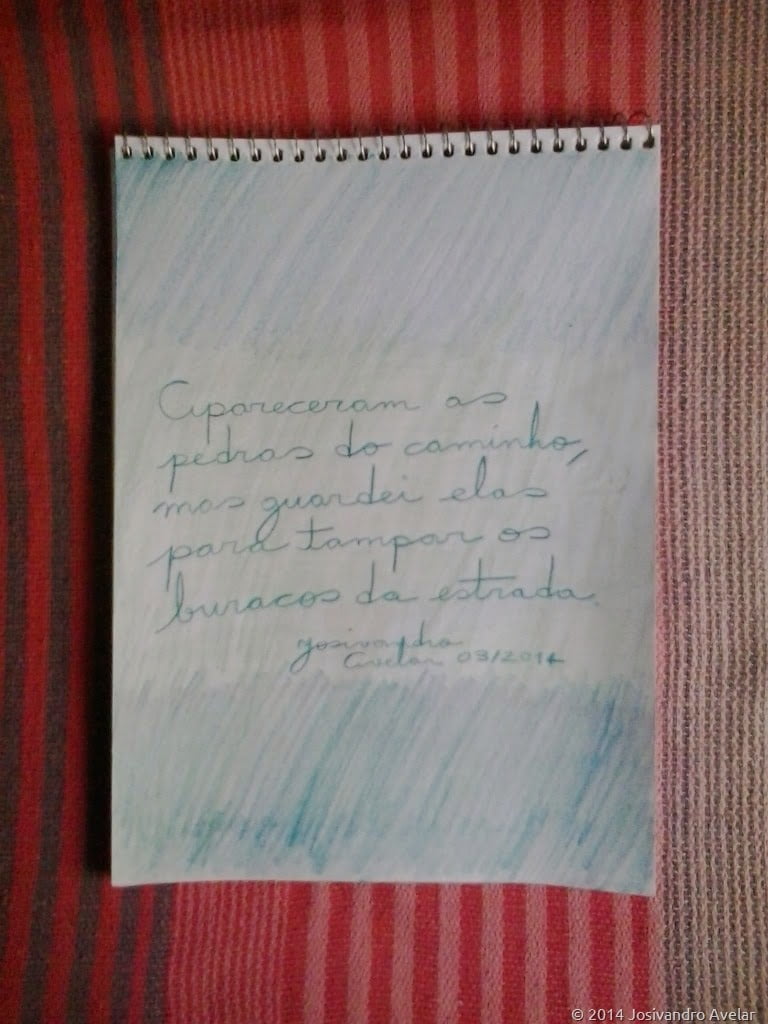 Apareceram as
pedras do caminho,
mas guardei elas
para tampar os
buracos da estrada.
Josivandro
Avelar 03/2014
© 2014 Josivandro Avelar